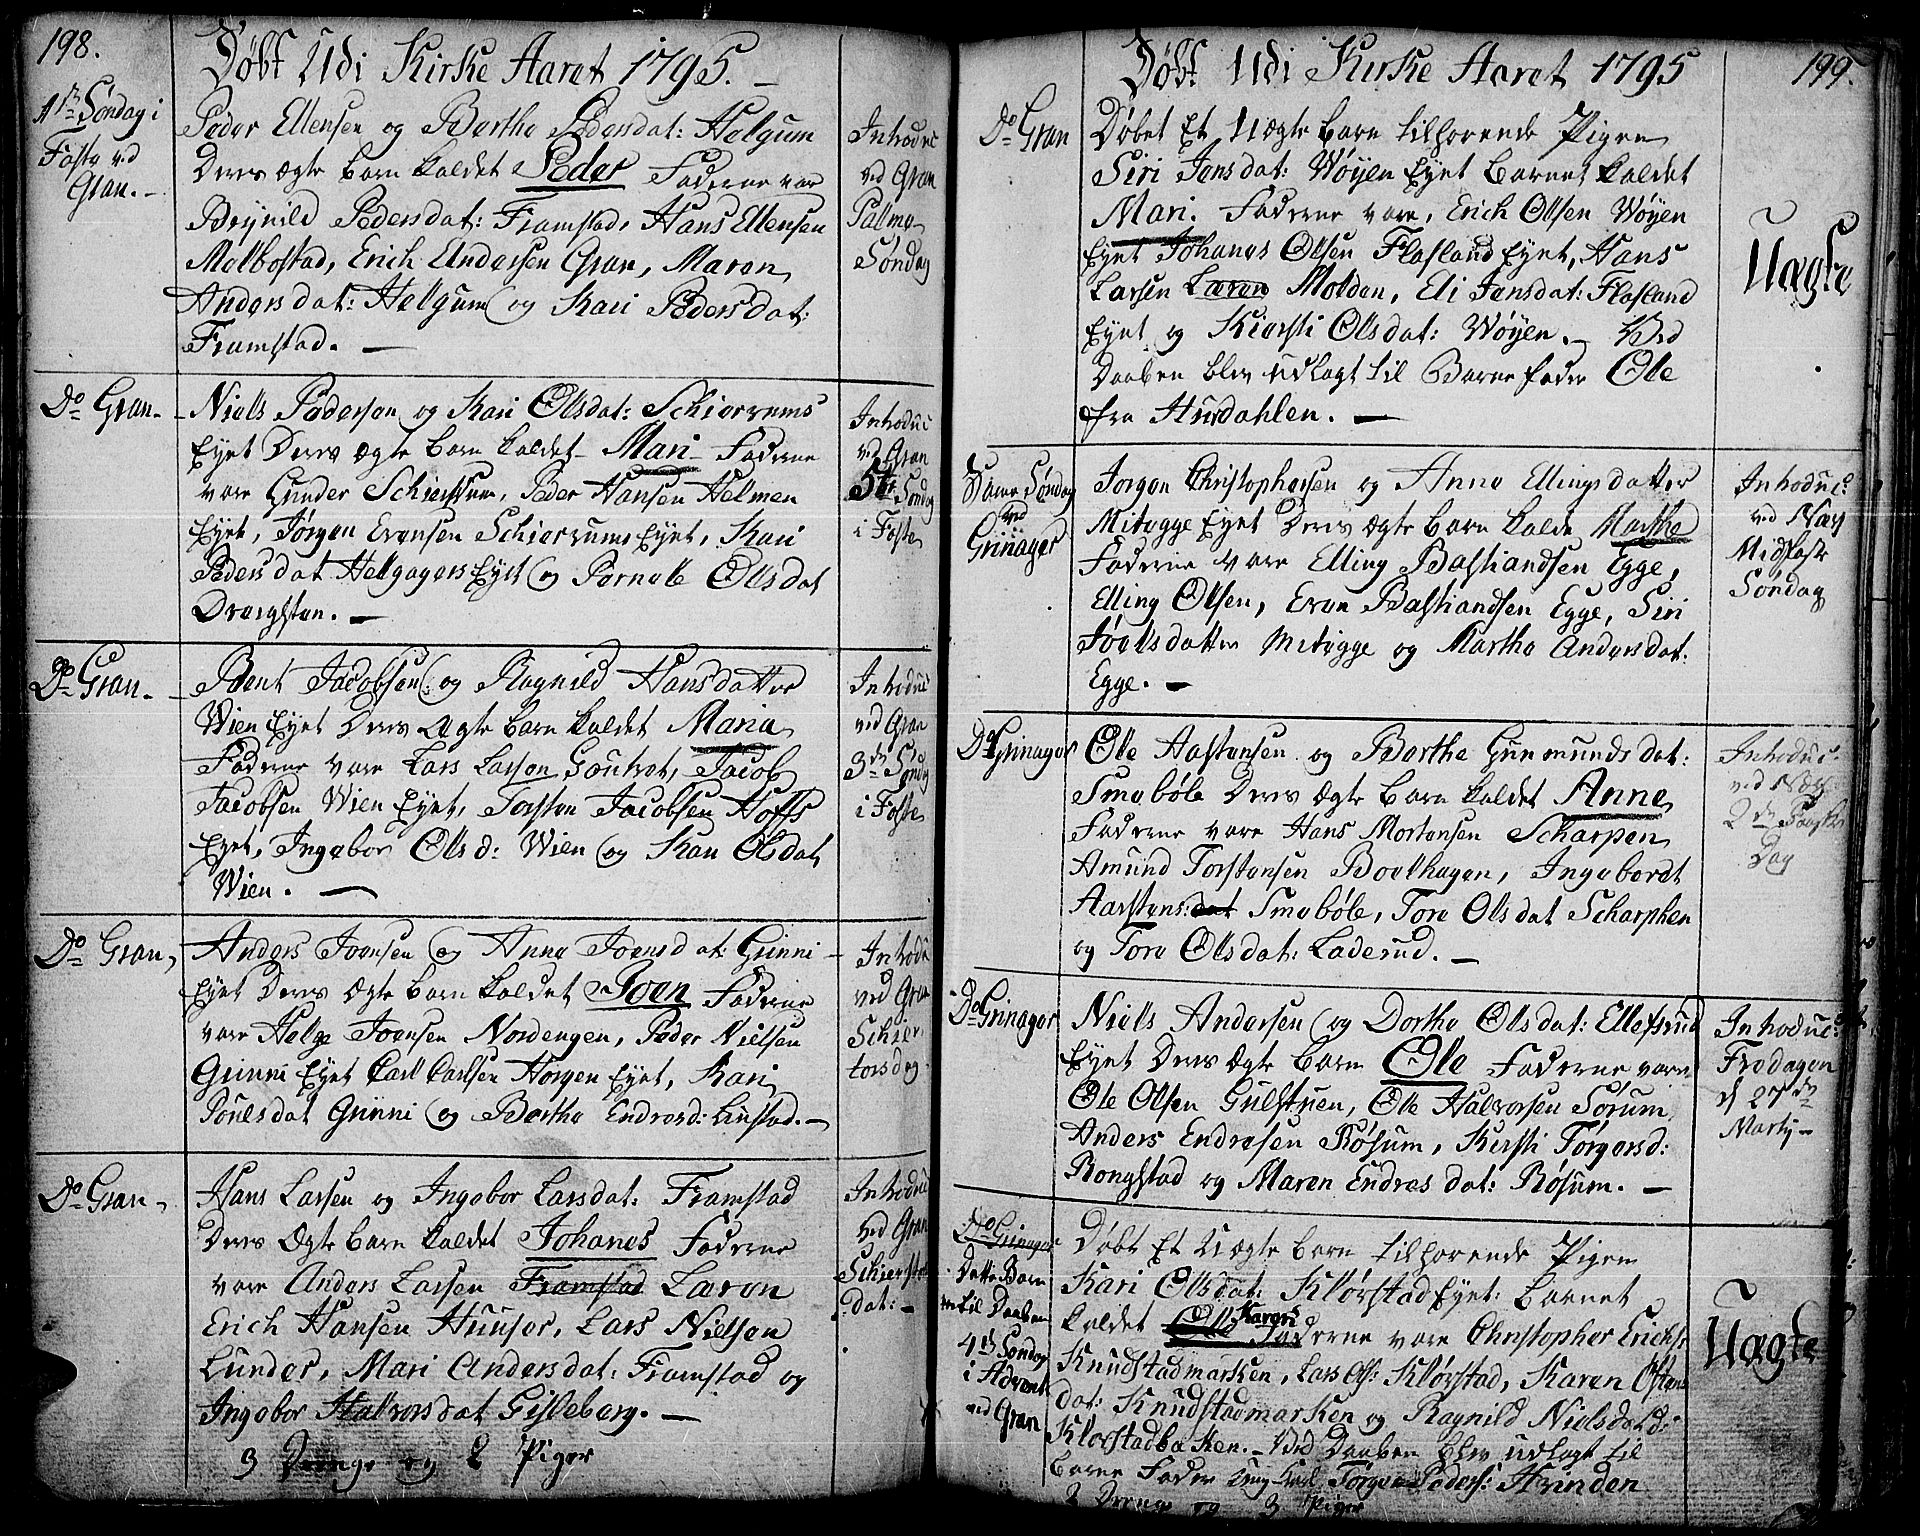 198.
Døbt Udi Kirke Aaret 1795. –
4de Søndag i
Faste ved
Gran. –
Peder Ellensen og Berthe Pedersdat: Helgum
Deres Ægte Barn kaldet Peder Faderne var
Reynild Pedersdat: Framstad, Hans Ellensen
Melbostad, Erich Andersen Gran, Maren
Andersdat: Helgum og Kari Pedersdat:
Framstad. —
Introduc
ved Gran
Palme-
Søndag
Do Gran. –
Niels Pedersen og Kari Olsdat: Schierrums
Eyet Deres Ægte Barn kaldet Mari Faderne
vare Gunder Schierrum, Peder Hansen Helmen
Eyet, Jørgen Evensen Schierrums Eyet, Kari
Pedersdat Helgagers Eyet og Pernele Olsdat
Dvergsten. —
Introduc
ved Gran
5te Søndag
i Faste
Do Gran. –
Bent Jacobsen og Ragnild Hansdatter
Wien Eyet Deres Ægte Barn kaldet Maria
Faderne vare Lars Larsen Goutvet, Jacob
Jacobsen Wien Eyet, Torsten Jacobsen Hoffs
Eyet, Ingebor Olsd: Wien og Kari Olsdat
Wien. —
Introduc
ved Gran
3de Søndag
i Faste
Do Gran,
Anders Joensen og Anne Joensdat: Grinni –
Eyet Deres Ægte Barn kaldet Joen Faderne
vare Helge Joensen Nordengen, Peder Nielsen
Grinni Eyet Carl Carlsen Horgen Eyet, Kari
Poulsdat Grinni og Berthe Endresd: Linstad. –
Introdu
ved Gran
Schier
torsdag
Do Gran,
Hans Larsen og Ingebor Larsdat: Framstad
Deres Ægte Barn kaldet Johanes Faderne
vare Anders Larsen Framstad Læren
Erich Hansen Huuser, Lars Nielsen
Lunder, Mari Andersdat: Framstad og
Ingebor Halvorsdat Gisleberg. —
Introdu
ved Gran
Schierstor
dat: –
3 Drenge og 2 Piger
Døbt Udi Kirke Aaret 1795
199.
Do Gran
Døbet Et Uægte Barn tilhørende Pigen
Siri Jensdat: Wøyen Eyet Barnet kaldet
Mari. Faderne vare, Erich Olsen Wøyen
Eyet Johanes Olsen Flasland Eyet, Hans
Larsen Læren Molden, Eli Jensdat: Flasland
Eyet og Kiersti Olsdat: Wøyen. – Ved
Daaben blev udlagt til Barne fader Ole
fra Hurdahlen. —
Uægte
Same Søndag
ved
Grinager
Jørgen Christophersen og Anne Ellingsdatter
Mitegge Eyet Deres Ægte Barn kalde Marthe
Faderne vare Elling Bastiandsen Egge,
Elling Olsen, Even Bastiandsen Egge, Siri
Joelsdatter Mitegge og Marthe Andersdat:
Egge. —
Introduc:
ved Næs
Midfaste
Søndag
Do Grinager
Ole Aastensen og Berthe Gunmundsdat:
Smebøle Deres Ægte Barn kaldet Anne
Faderne vare Hans Mortensen Scharpen
Amund Torstensen Boelhagen, Ingeboret
Aarstens:dat Smebøle, Tore Olsdat Scharphen
og Tore Olsdat: Laderud. –
Introduc:
ved Næs
2den Paaske
Dag
Do Grinager
Niels Andersen og Dorthe Olsdat: Ellefsrud
Eyet Deres Ægte Barn Ole Faderne vare
Ole Olsen Gulstuen, Ole Halvorsen Sørum
Anders Endresen Røsum, Kersti Torgersd:
Rongstad og Maren Endresdat: Røsum. –
Introduc:
Fredagen
d 27de
Marty –
Do Grinager
Dette Barn
er til Daaben
4de Søndag
i Advent
ved Gran
Døbt Et Uægte Barn tilhørende Pigen
Kari Olsdat: Klørstad Eyet: Barnet
kaldet Ole Karen Faderne vare Christopher Erichs:
Knudstadmarken, Lars Ols: Klørstad, Karen Østens
dat: Knudstadmarken og Ragnild Nielsdatd:
Klorstadbakken. – Ved Daaben blev udlagt til
Barne Fader Ung Karl Törgen Peders: Hvinden
Uægte
2 Drenge og 3 Piger